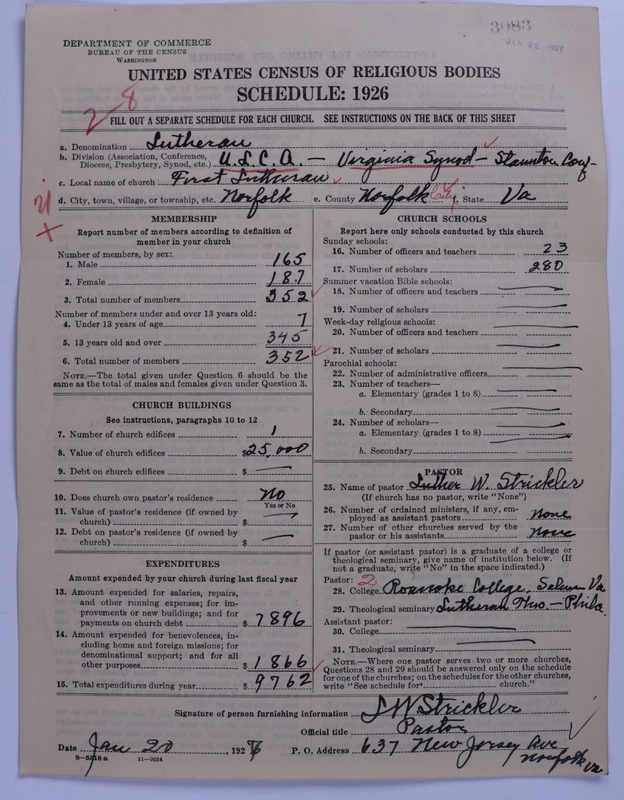 3083
JAN 28 1927
DEPARTMENT OF COMMERCE
BUREAU OF THE CENSUS
WASHINGTON
UNITED STATES CENSUS OF RELIGIOUS BODIES
SCHEDULE: 1926
2-8
FILL OUT A SEPARATE SCHEDULE FOR EACH CHURCH. SEE INSTRUCTIONS ON THE BACK OF THIS SHEET
a. Denomination Lutheran
b. Division (Association, Conference, Diocese, Presbytery, Synod, etc.) U.L.C.A. — Virginia Synod — Staunton Conf-
c. Local name of church First Lutheran
d. City, town, village, or township, etc. Norfolk e. County Norfolk City f. State Va
MEMBERSHIP
Report number of members according to definition of
member in your church
Number of members, by sex:
1. Male 165
2. Female 187
3. Total number of members 352
Number of members under and over 13 years old:
4. Under 13 years of age 7
5. 13 years old and over 345
6. Total number of members 352
NOTE.—The total given under Question 6 should be the
same as the total of males and females given under Question 3.
CHURCH BUILDINGS
See instructions, paragraphs 10 to 12
7. Number of church edifices 1
8. Value of church edifices $25,000
9. Debt on church edifices $ —
10. Does church own pastor's residence No
Yes or No
11. Value of pastor's residence (if owned by
church) $ —
12. Debt on pastor's residence (if owned by
church) $ —
EXPENDITURES
Amount expended by your church during last fiscal year
13. Amount expended for salaries, repairs,
and other running expenses; for im-
provements or new buildings; and for
payments on church debt $ 7896
14. Amount expended for benevolences, in-
cluding home and foreign missions; for
denominational support; and for all
other purposes $ 1866
15. Total expenditures during year $ 9762
CHURCH SCHOOLS
Report here only schools conducted by this church
Sunday schools:
16. Number of officers and teachers 23
17. Number of scholars 280
Summer vacation Bible schools:
18. Number of officers and teachers —
19. Number of scholars —
Week-day religious schools:
20. Number of officers and teachers —
21. Number of scholars —
Parochial schools:
22. Number of administrative officers —
23. Number of teachers—
a. Elementary (grades 1 to 8) —
b. Secondary —
24. Number of scholars—
a. Elementary (grades 1 to 8) —
b. Secondary —
PASTOR
25. Name of pastor Luther W. Strickler
(If church has no pastor, write "None")
26. Number of ordained ministers, if any, em-
ployed as assistant pastors None
27. Number of other churches served by the
pastor or his assistants None
If pastor (or assistant pastor) is a graduate of a college or
theological seminary, give name of institution below. (If
not a graduate, write "No" in the space indicated.)
Pastor: 2
28. College Roanoke College, Salem Va
29. Theological seminary Lutheran Theo — Phila.
Assistant pastor:
30. College —
31. Theological seminary —
NOTE.—Where one pastor serves two or more churches,
Questions 28 and 29 should be answered only on the schedule
for one of the churches; on the schedules for the other churches,
write "See schedule for church."
Signature of person furnishing information L W Strickler
Official title Pastor
Date Jan 20, 1927 P. O. Address 637 New Jersey Ave
Norfolk Va
8-5518a 11-9054